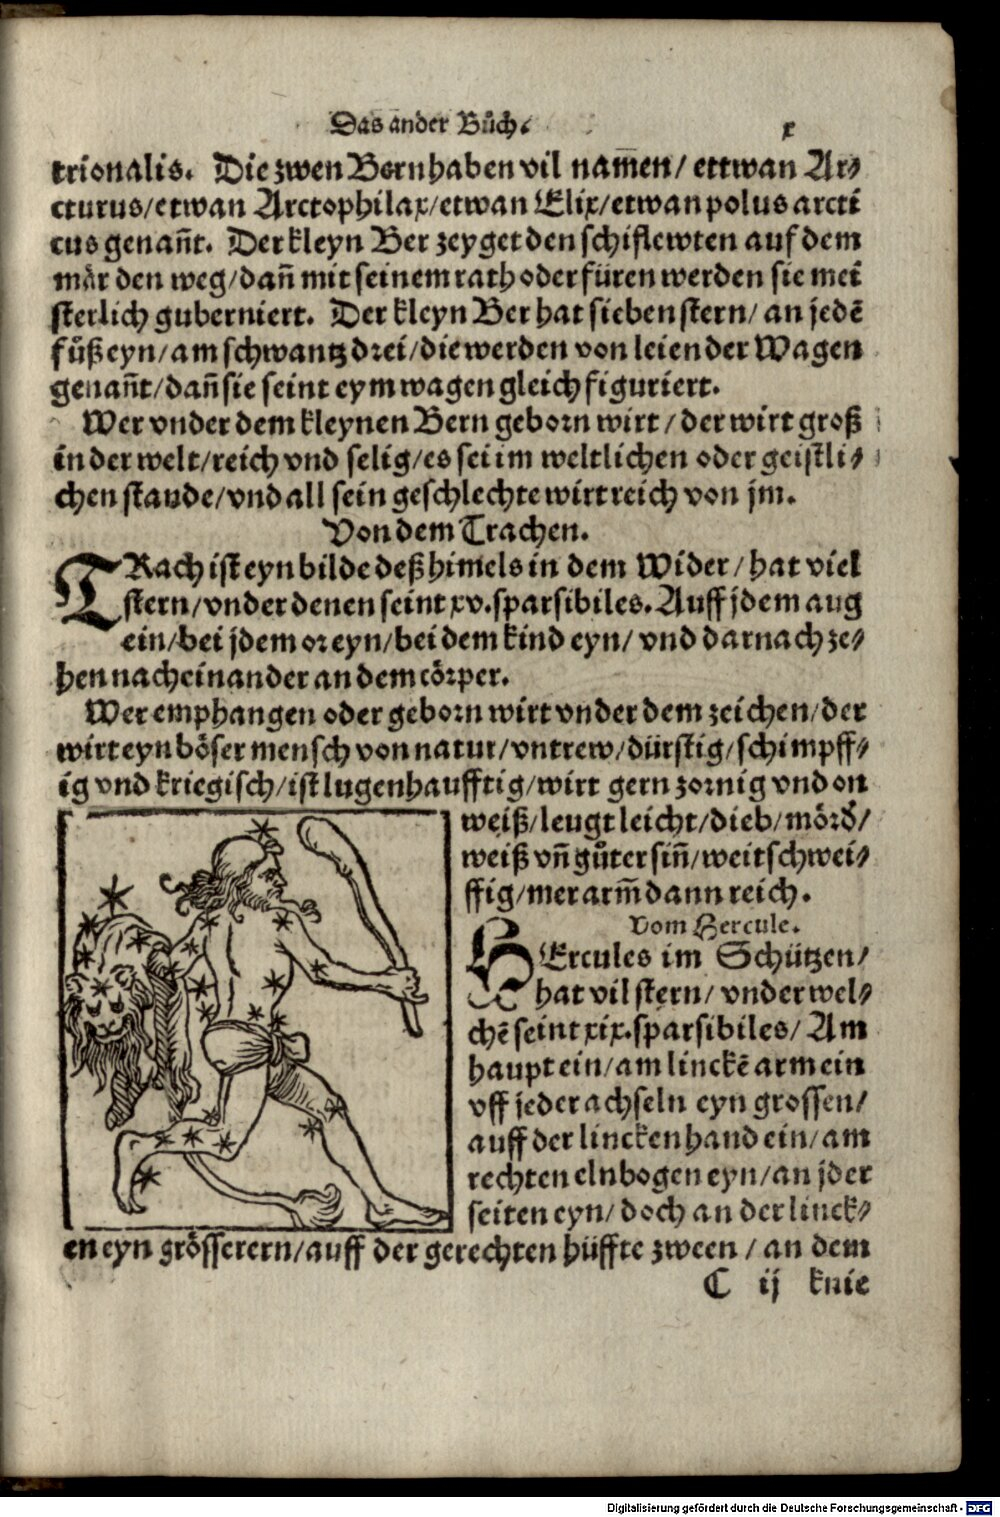 Das ander Bůch.
x
trionalis. Die zwen Bern haben vil nam̄en/ ettwan Ar⸗
cturus/etwan Arctophilax/etwan Elix/etwan polus arcti
cus genañt. Der kleyn Ber zeyget den schiflewten auf dem
mär den weg/dañ mit seinem rath oder füren werden sie mei
sterlich guberniert. Der kleyn Ber hat sieben stern/ an jedē
fůß eyn/am schwantz drei/die werden von leien der Wagen
genañt/dañ sie seint eym wagen gleich figuriert.
Wer vnder dem kleynen Bern geborn wirt/ der wirt groß
in der welt/reich vnd selig/es sei im weltlichen oder geistli⸗
chen stande/vnd all sein geschlechte wirt reich von jm.
Von dem Trachen.
TRach ist eyn bilde deß him̄els in dem Wider/ hat viel
stern/vnder denen seint xv.sparsibiles. Auff jdem aug
ein/bei jdem or eyn/bei dem kind eyn/ vnd darnach ze⸗
hen nacheinander an dem cörper.
Wer emphangen oder geborn wirt vnder dem zeichen/der
wirt eyn böser mensch von natur/vntrew/dürstig/schimpff⸗
ig vnd kriegisch/ist lugenhaufftig/wirt gern zornig vnd on
weiß/leugt leicht/dieb/mörd̕/
weiß vñ gůter siñ/weitschwei⸗
ffig/mer arm̄ dann reich.
Vom Hercule.
HErcules im Schützen/
hat vil stern/ vnder wel⸗
chē seint xix.sparsibiles/ Am
haupt ein/am linckē arm ein
vff jeder achseln eyn grossen/
auff der lincken hand ein/am
rechten elnbogen eyn/an jder
seiten eyn/ doch an der linck⸗
en eyn grösserern/auff der gerechten hüffte zween/an dem
C ij knie
Digitalisierung gefördert durch die Deutsche Forschungsgemeinschaft - DFG